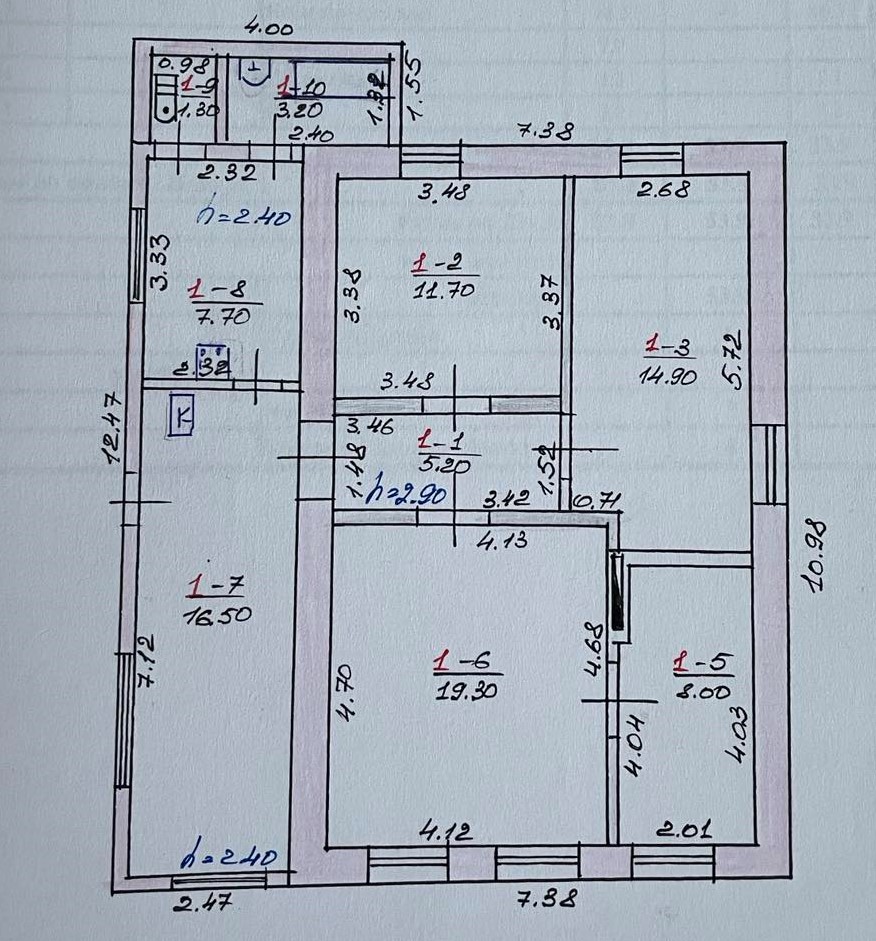 4.00
0.98
1-9
1.30
1-10
3.20
1.32
1.55
2.40
7.38
2.32
h=2.40
3.48
2.68
3.33
1-8
7.70
3.38
1-2
11.70
3.37
1-3
14.90
5.72
2.32
3.48
K
12.47
3.46
1-1
5.20
1.48
1.52
h=2.90
3.42
0.71
4.13
10.98
1-7
16.50
7.12
4.70
1-6
19.30
4.68
1-5
8.00
4.04
4.03
h=2.40
4.12
2.01
2.47
7.38